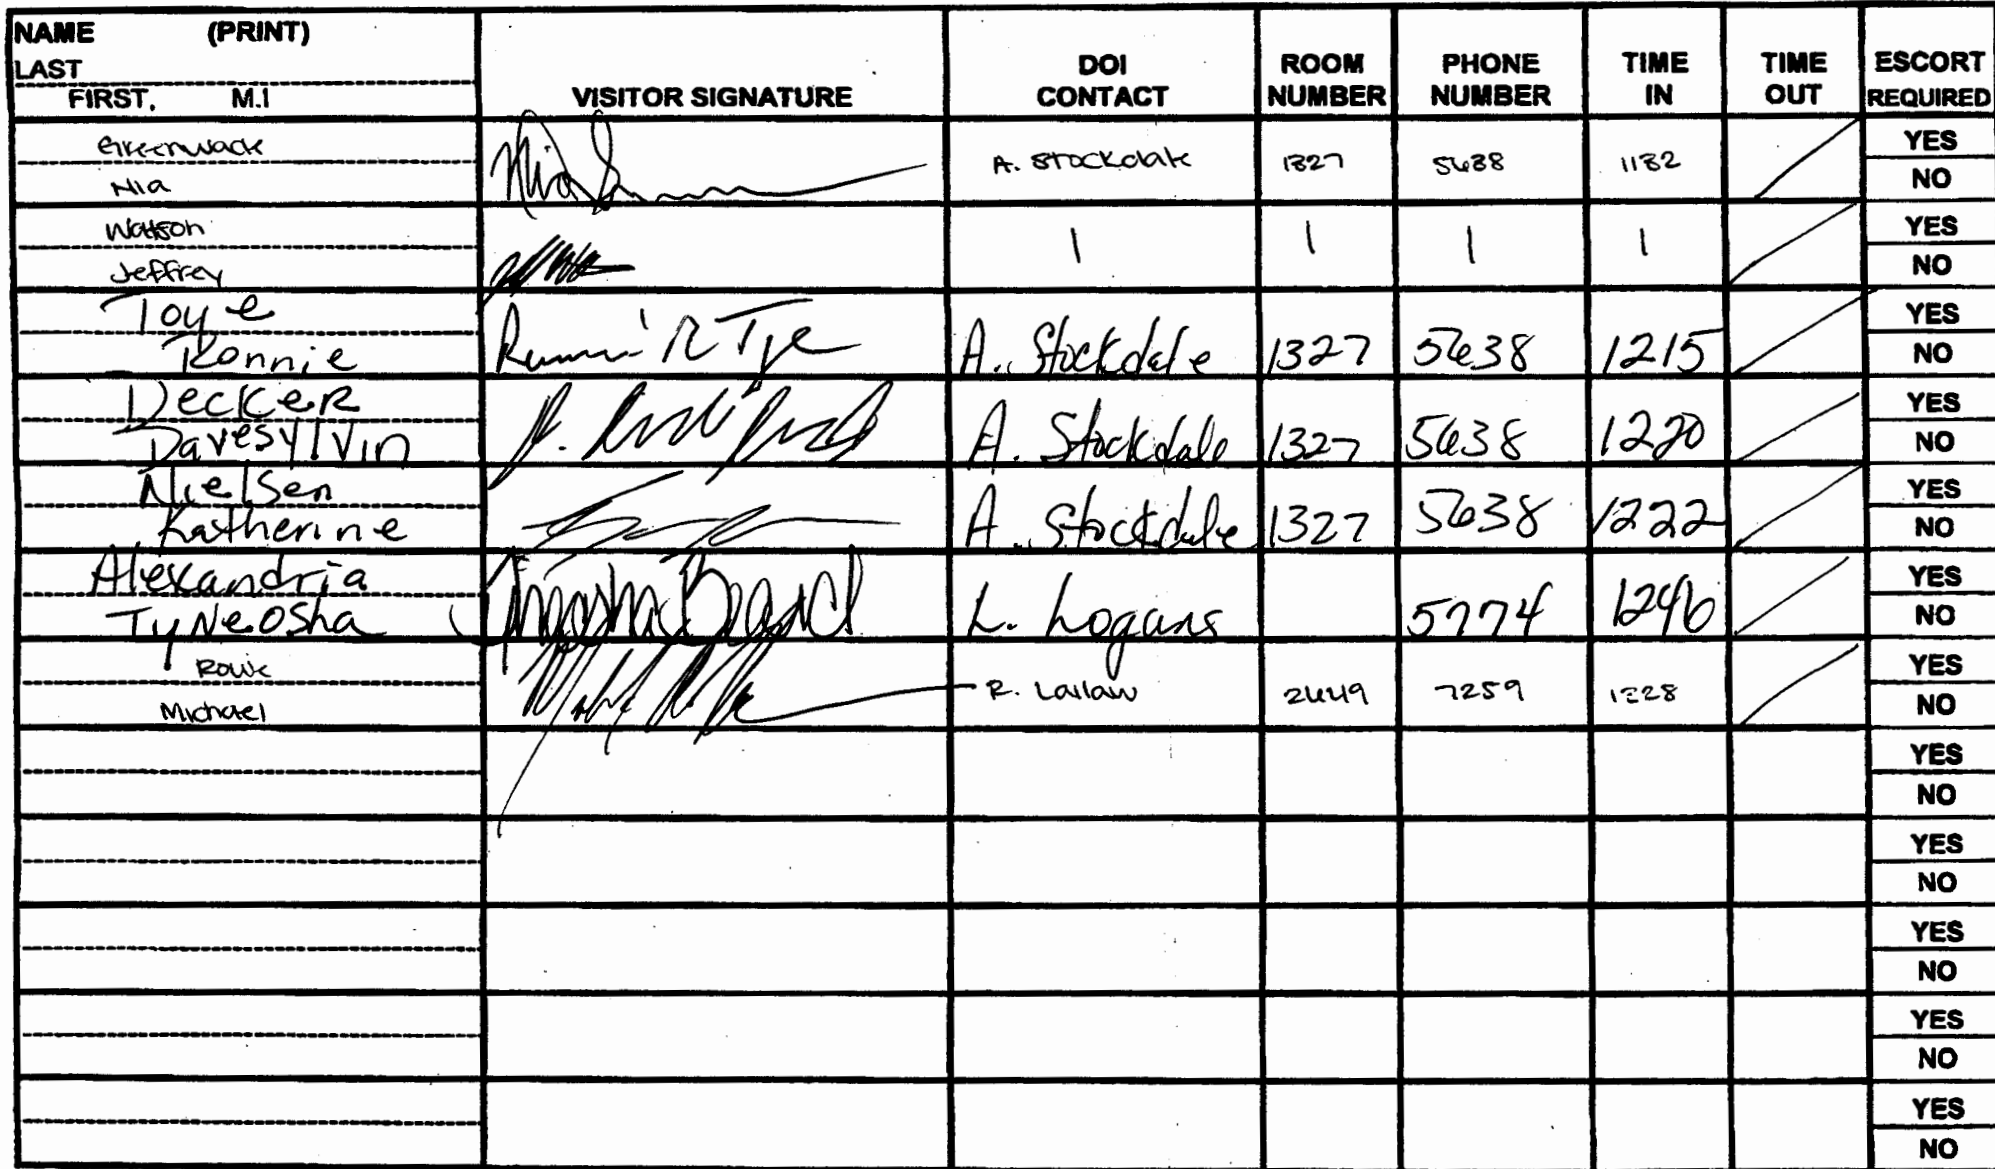 NAME (PRINT)
LAST
FIRST, M.I
VISITOR SIGNATURE
DOI CONTACT
ROOM NUMBER
PHONE NUMBER
TIME IN
TIME OUT
ESCORT REQUIRED
Greenwade
Nia
A. Stockdale 1327 5638 1132
YES
NO
Watson
Jeffrey
| | | |
YES
NO
Toye
Ronnie
A. Stockdale 1327 5638 1215
YES
NO
Decker
Davesylvin
A. Stockdale 1327 5638 1220
YES
NO
Nielsen
Katherine
A. Stockdale 1327 5638 1222
YES
NO
Alexandria
TyNeosha
L. Logans 5774 1246
YES
NO
Rowe
Michael
R. Lailaw 2649 7259 1328
YES
NO
YES
NO
YES
NO
YES
NO
YES
NO
YES
NO